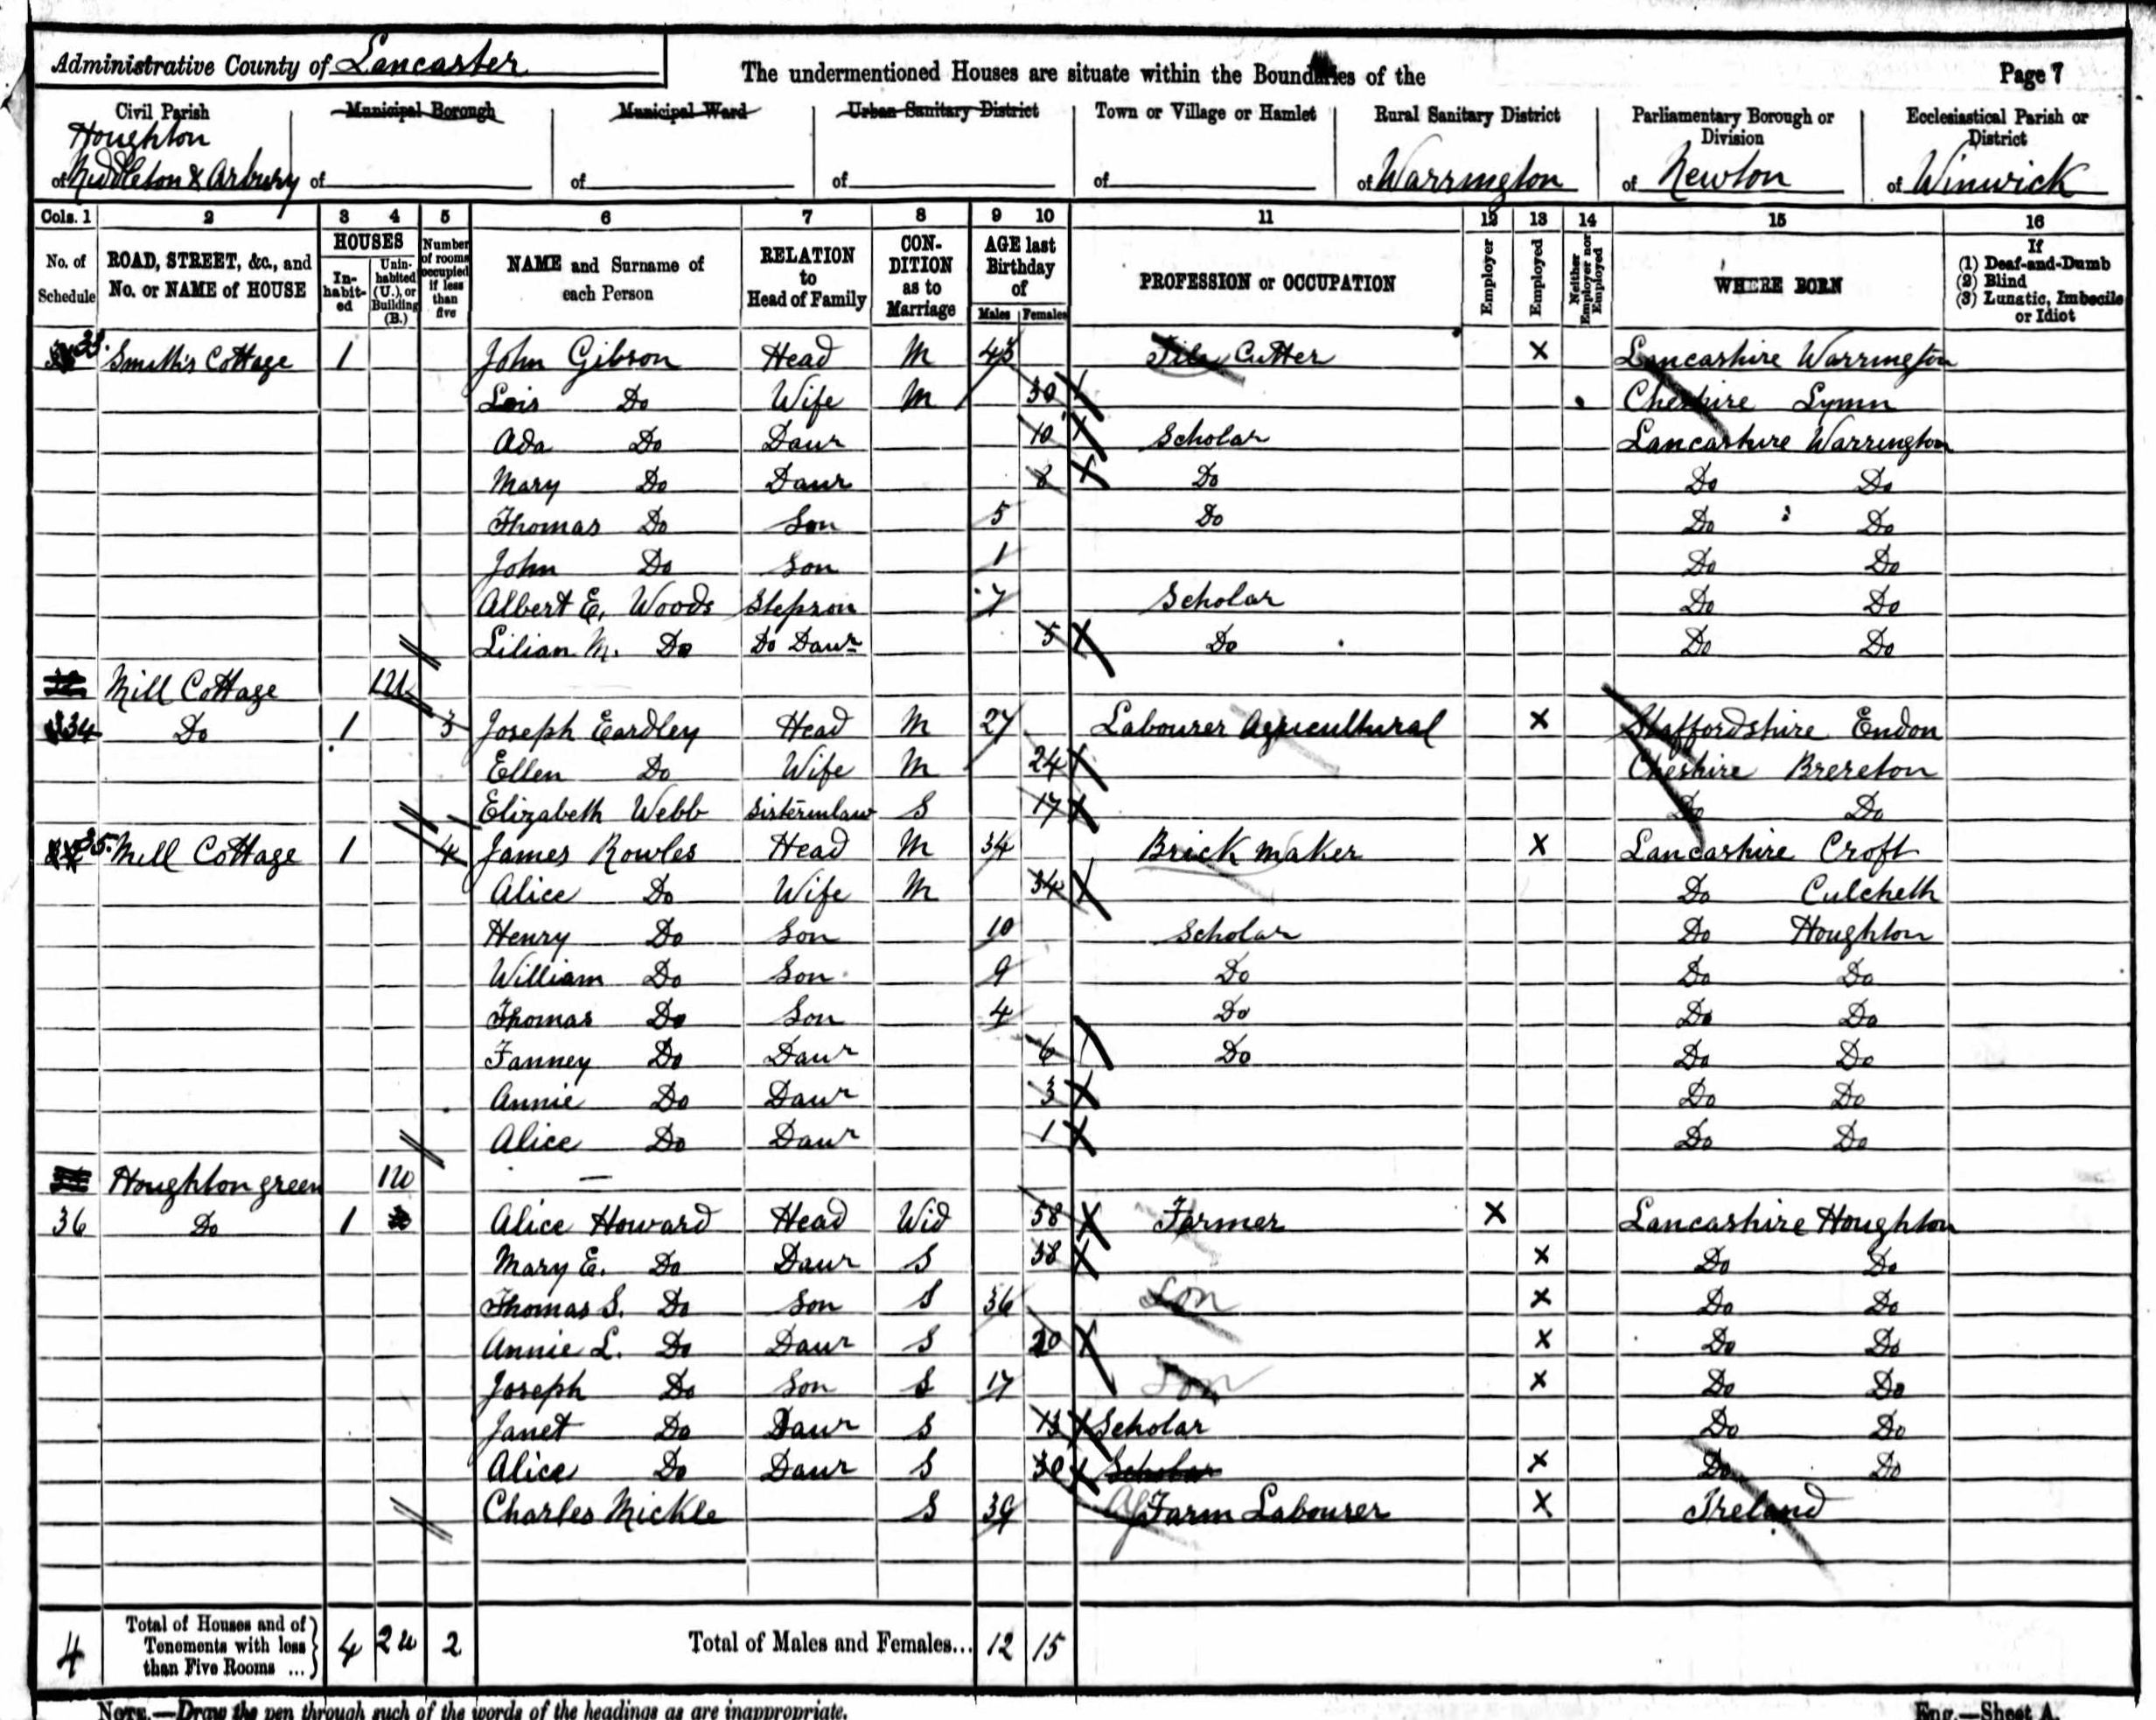 Administrative County of Lancaster
The undermentioned Houses are situate within the Boundaries of the
Page 7
Civil Parish Municipal Borough Municipal Ward Urban Sanitary District Town or Village or Hamlet Rural Sanitary District Parliamentary Borough or Division Ecclesiastical Parish or District
Houghton
of Middleton & Arbury of of of of of Warrington of Newton of Winwick
Cols. 1 2 3 4 5 6 7 8 9 10 11 12 13 14 15 16
No. of Schedule ROAD, STREET, &c., and No. or NAME of HOUSE HOUSES In-habit-ed Unin-habited (U.), or Building (B.) Number of rooms occupied if less than five NAME and Surname of each Person RELATION to Head of Family CON-DITION as to Marriage AGE last Birthday of Males Females PROFESSION or OCCUPATION Employer Employed Neither Employer nor Employed WHERE BORN If (1) Deaf-and-Dumb (2) Blind (3) Lunatic, Imbecile or Idiot
33 Smith's Cottage 1 John Gibson Head M 43 Cutter X Lancashire Warrington
Lois Do Wife M 30 X Cheshire Lymn
Ada Do Daur 10 X Scholar Lancashire Warrington
Mary Do Daur 8 X Do Do Do
Thomas Do Son 5 Do Do Do
John Do Son 1 Do Do
Albert E. Woods Stepson 7 Scholar Do Do
Lilian M. Do Do Daur 5 X Do Do Do
Mill Cottage 1U
34 Do 1 3 Joseph Eardley Head M 27 Labourer Agricultural X Staffordshire Endon
Ellen Do Wife M 24 X Cheshire Brereton
Elizabeth Webb Sisterinlaw S 17 X Do Do
35 Mill Cottage 1 4 James Rowles Head M 34 Brick maker X Lancashire Croft
Alice Do Wife M 34 X Do Culcheth
Henry Do Son 10 Scholar Do Houghton
William Do Son 9 Do Do Do
Thomas Do Son 4 Do Do Do
Fanney Do Daur 6 Do Do Do
Annie Do Daur 3 X Do Do
Alice Do Daur 1 X Do Do
Houghton green 1U —
36 Do 1 Alice Howard Head Wid 58 X Farmer X Lancashire Houghton
Mary E. Do Daur S 38 X X Do Do
Thomas S. Do Son S 36 Son X Do Do
Annie L. Do Daur S 20 X X Do Do
Joseph Do Son S 17 Son X Do Do
Janet Do Daur S 13 X Scholar Do Do
Alice Do Daur S 30 X Scholar X Do Do
Charles Mickle S 39 Ag Farm Labourer X Ireland
4 Total of Houses and of Tenements with less than Five Rooms ... 4 2u 2 Total of Males and Females... 12 15
NOTE.—Draw the pen through such of the words of the headings as are inappropriate.
Eng.—Sheet A.